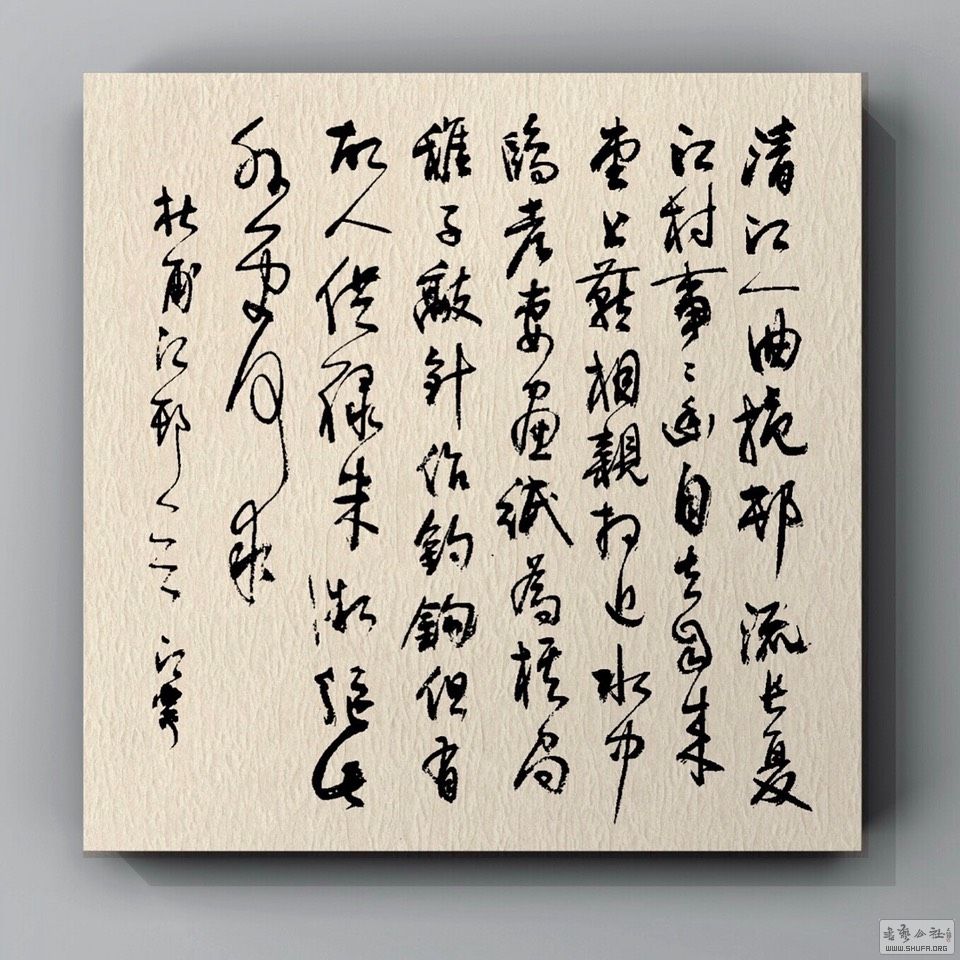 清江一曲抱邨流長夏
江村事々幽自去自来
堂上燕相親相近水中
鷗老妻畫紙為棋局
稚子敲針作釣鉤但有
故人供禄米微軀此
外更何求
杜甫江邨
书艺公社
WWW.SHUFA.ORG